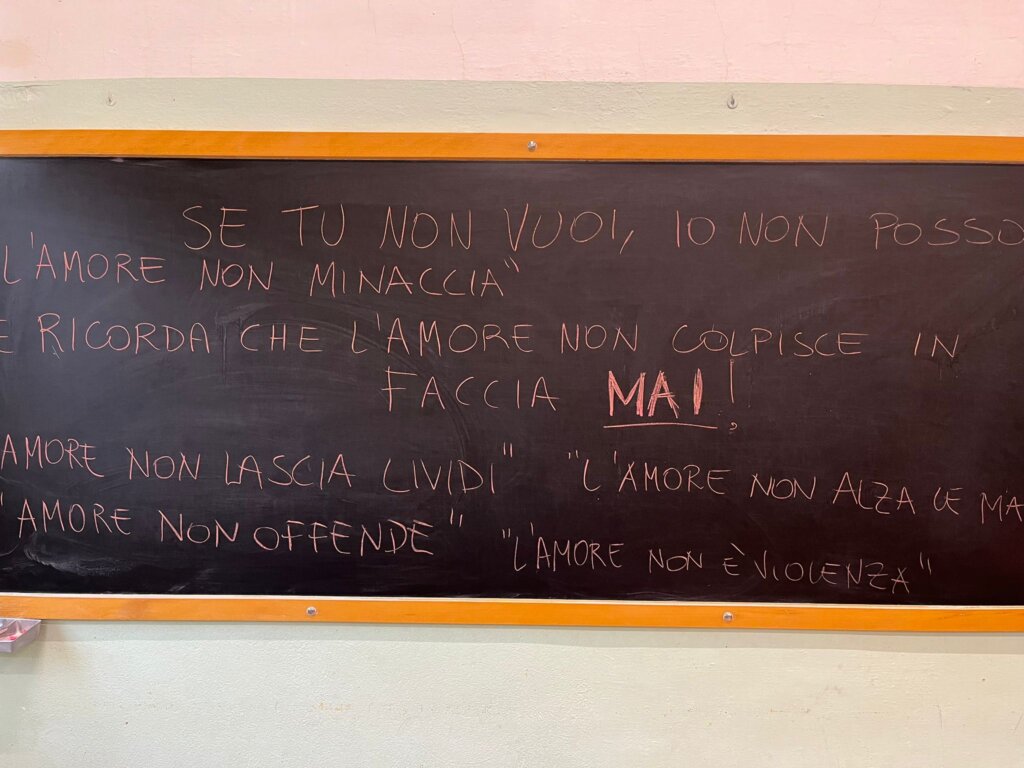 SE TU NON VUOI, IO NON POSSO
L'AMORE NON MINACCIA"
E RICORDA CHE L'AMORE NON COLPISCE IN
FACCIA MAI!
AMORE NON LASCIA LIVIDI" "L'AMORE NON ALZA LE MA
"AMORE NON OFFENDE" "L'AMORE NON È VIOLENZA"